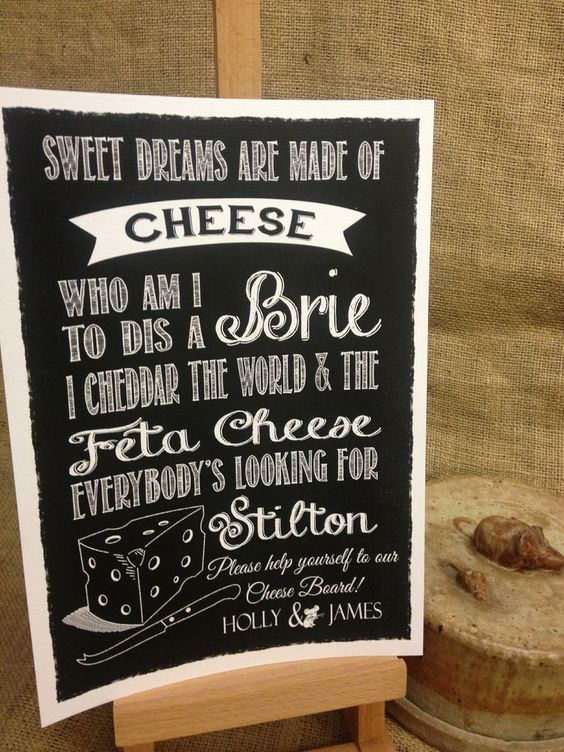 SWEET DREAMS ARE MADE OF
CHEESE
WHO AM I
TO DIS A Brie
I CHEDDAR THE WORLD & THE
Feta Cheese
EVERYBODY'S LOOKING FOR
Stilton
Please help yourself to our
Cheese Board!
HOLLY & JAMES